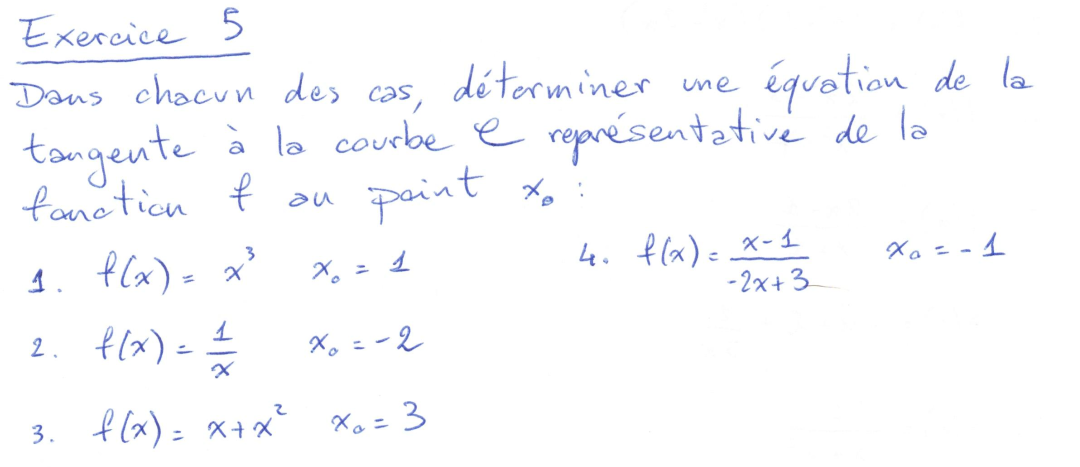 Exercice 5
Dans chacun des cas, déterminer une équation de la
tangente à la courbe C représentative de la
fonction f au point x₀ :
1. f(x) = x³ x₀ = 1
4. f(x) = (x-1)/(-2x+3) x₀ = -1
2. f(x) = 1/x x₀ = -2
3. f(x) = x+x² x₀ = 3